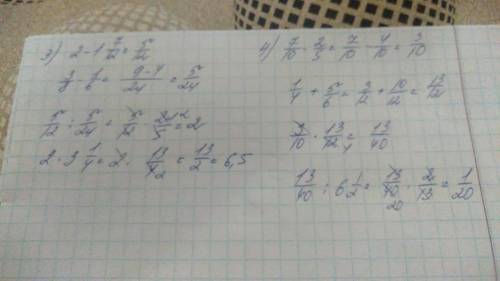 3) 2 - 1 7/12 = 5/12
3/8 - 1/6 = 9-4/24 = 5/24
5/12 : 5/24 = 5/12 · 24 2/5 = 2
2 · 3 1/4 = 2 · 13/4 2 = 13/2 = 6,5
4) 7/10 - 2/5 = 7/10 - 4/10 = 3/10
1/4 + 5/6 = 3/12 + 10/12 = 13/12
3/10 · 13/12 4 = 13/40
13/40 : 6 1/2 = 13/40 20 · 2/13 = 1/20